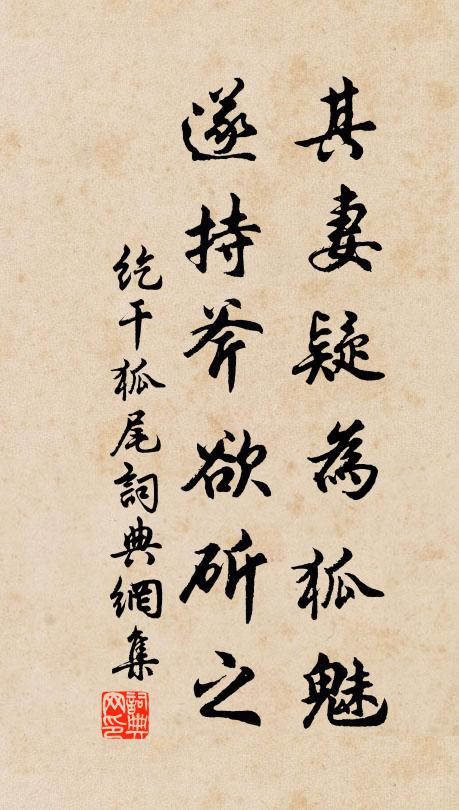 其妻疑為狐魅
遂持斧欲斫之
紇干狐尾詞典網集
詞典网印